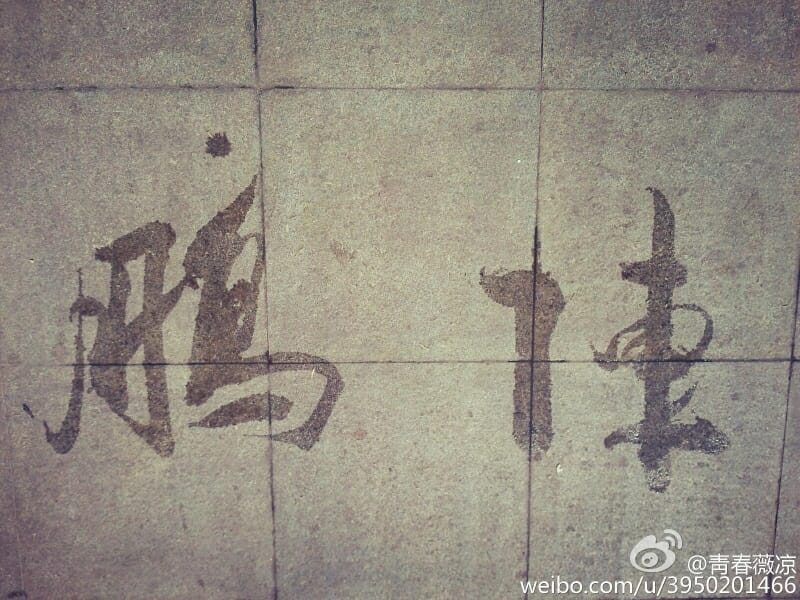 陳鵬
@青春薇凉
weibo.com/u/3950201466